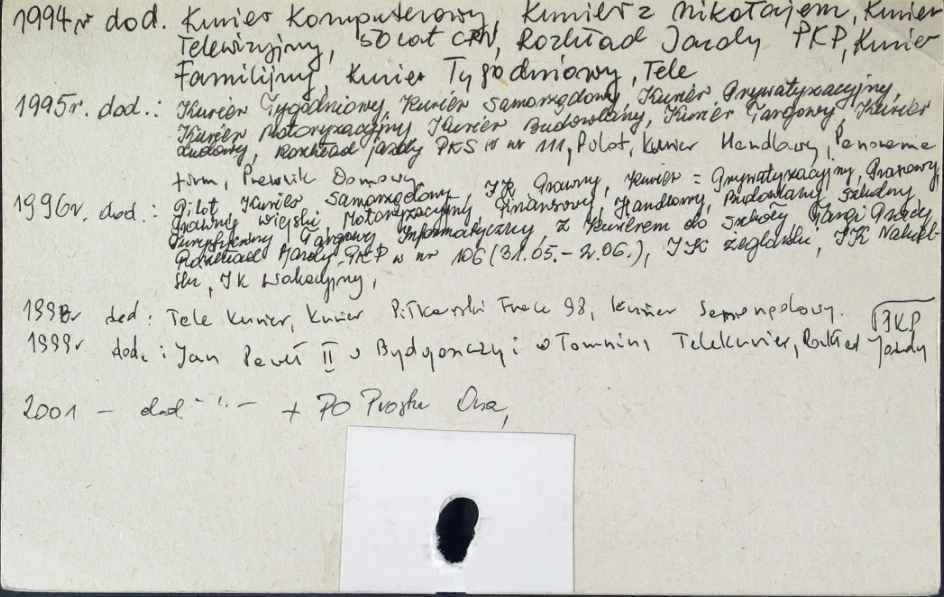 1994r dod. Kurier Komputerowy, Kurier z Mikołajem, Kurier
Telewizyjny, 50 lat CRN, Rozkład Jazdy PKP, Kurier
Familijny, Kurier Tygodniowy, Tele
1995r. dod.: Kurier Tygodniowy, Kurier Samorządowy, Kurier Prywatyzacyjny,
Kurier Motoryzacyjny, Kurier Budowlany, Kurier Targowy, Kurier
Ludowy, Rozkład jazdy PKS w nr 111, Pilot, Kurier Handlowy, Panorama
firm, Prawnik Domowy
1996r. dod.: Pilot, Kurier Samorządowy, IK Prawny, Kurier = Prywatyzacyjny, Prasowy,
Prawny, Wiejski, Motoryzacyjny, Finansowy, Handlowy, Budowlany, Szkolny
Turystyczny, Targowy, Informatyczny, Z Kurierem do Szkoły, Targi Pracy,
Rozkład Jazdy PKP w nr 106 (31.05.-2.06.), IK żeglarski, IK Nakiel-
ski, IK Wakacyjny,
1998r dod: Tele Kurier, Kurier Piłkarski France 98, Kurier Samorządowy.
1999r dod.: Jan Paweł II w Bydgoszczy i w Toruniu, Telekurier, Rozkład Jazdy PKP
2001 - dod - " - + Po Prostu Ona,